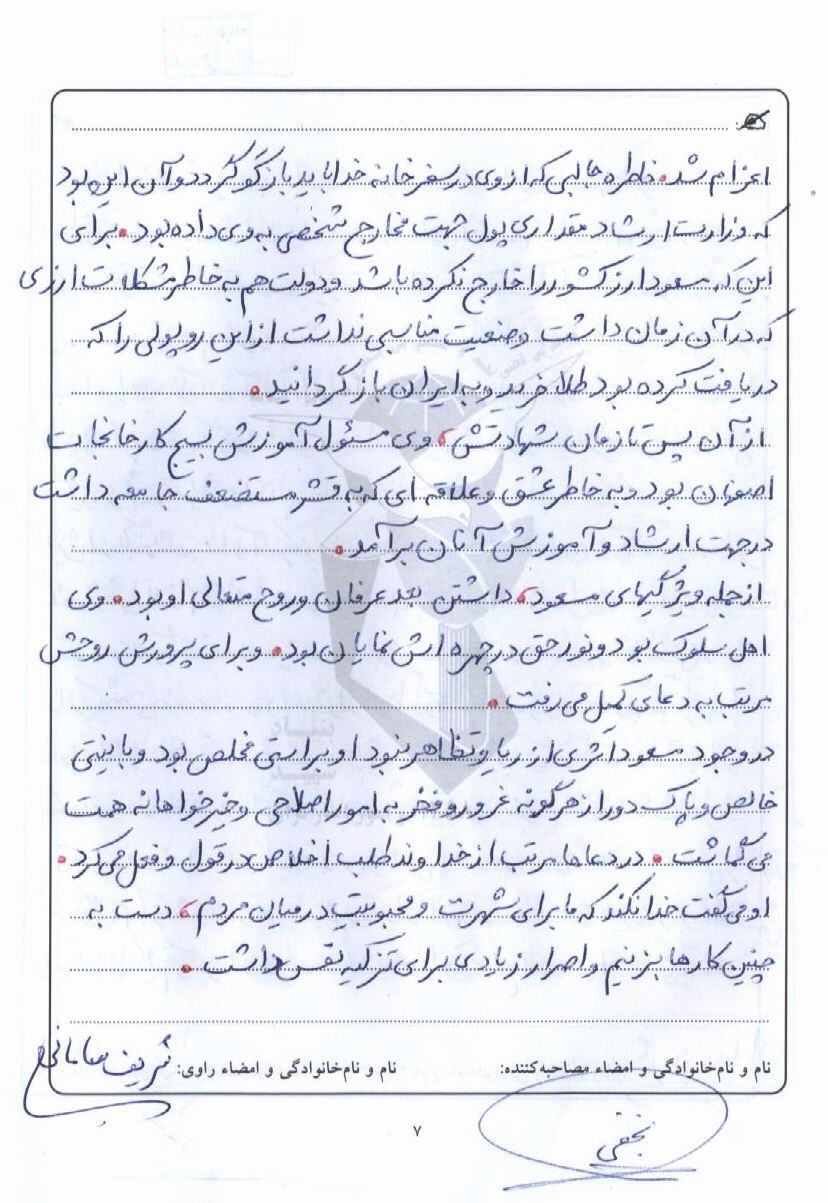 اعزام شد. خاطره جالبی که از وی در سفر خانه خدا باید بازگو گردد و آن این بود
که وزارت ارشاد مقداری پول جهت مخارج شخصی به وی داده بود. برای
این که مسعود ارز کشور را خارج نکرده باشد و دولت هم به خاطر مشکلات ارزی
که در آن زمان داشت وضعیت مناسبی نداشت از این رو پولی را که
دریافت کرده بود طلا خرید و به ایران باز گردانید.
از آن پس تا زمان شهادتش، وی مسئول آموزش بسیج کارخانجات
اصفهان بود و به خاطر عشق و علاقه ای که به قشر مستضعف جامعه داشت
در جهت ارشاد و آموزش آنان برآمد.
از جمله ویژگیهای مسعود، داشتن بعد عرفان و روح متعالی او بود. وی
اهل سلوک بود و نور حق در چهره اش نمایان بود. و برای پرورش روحش
مرتب به دعای کمیل می رفت.
در وجود مسعود اثری از ریا و تظاهر نبود او براستی مخلص بود و با نیتی
خالص و پاک دور از هرگونه غرور و فخر به امور اصلاحی و خیرخواهانه همت
می گماشت. در دعاها مرتب از خداوند طلب اخلاص در قول و فعل می کرد.
او می گفت خدا نکند که ما برای شهرت و محبوبیت در میان مردم، دست به
چنین کارها بزنیم و اصرار زیادی برای تزکیه نفس داشت.
نام و نام‌خانوادگی و امضاء مصاحبه‌کننده: نام و نام‌خانوادگی و امضاء راوی: شریف سامانی
نجفی
۷